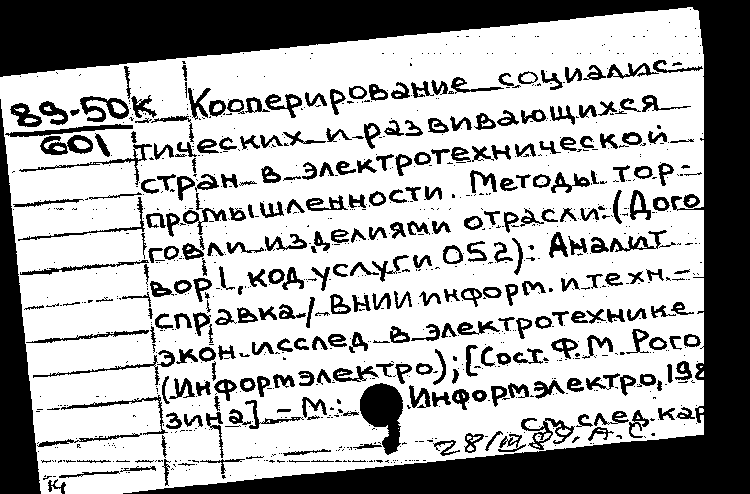 89-50к Кооперирование социалис-
601
тических и развивающихся
стран в электротехнической
промышленности. Методы тор-
говли изделиями отрасли: (Дого
вор 1, код услуги 052): Аналит
справка / ВНИИ информ. и техн.-
экон. исслед в электротехнике
(Информэлектро); [Сост. Ф.М Рого
зина] – М.: Информэлектро, 198
См. след. кар
28/III 89. А.С.
14